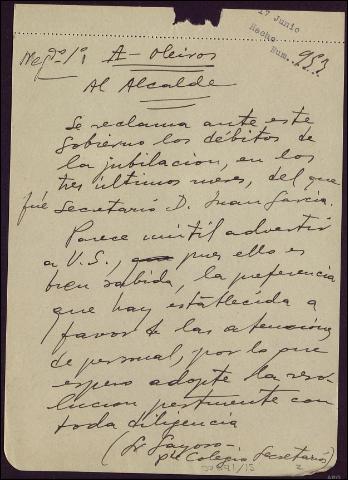 17 Junio
Hecho
Num. 953
Negdº 1º A - Oleiros
Al Alcalde
Se reclama ante este
Gobierno los débitos de
la jubilacion, en los
tres ultimos meses, del que
fué Secretario D. Juan Garcia.
Parece inútil advertir
a V.S., pues ello es
bien sabida, la preferencia
que hay establecida a
favor de las atenciones
de personal, por lo que
espero adopte la reso-
lucion pertinente con
toda diligencia
(Sr Gayoso-
pte Colegio Secretarios)